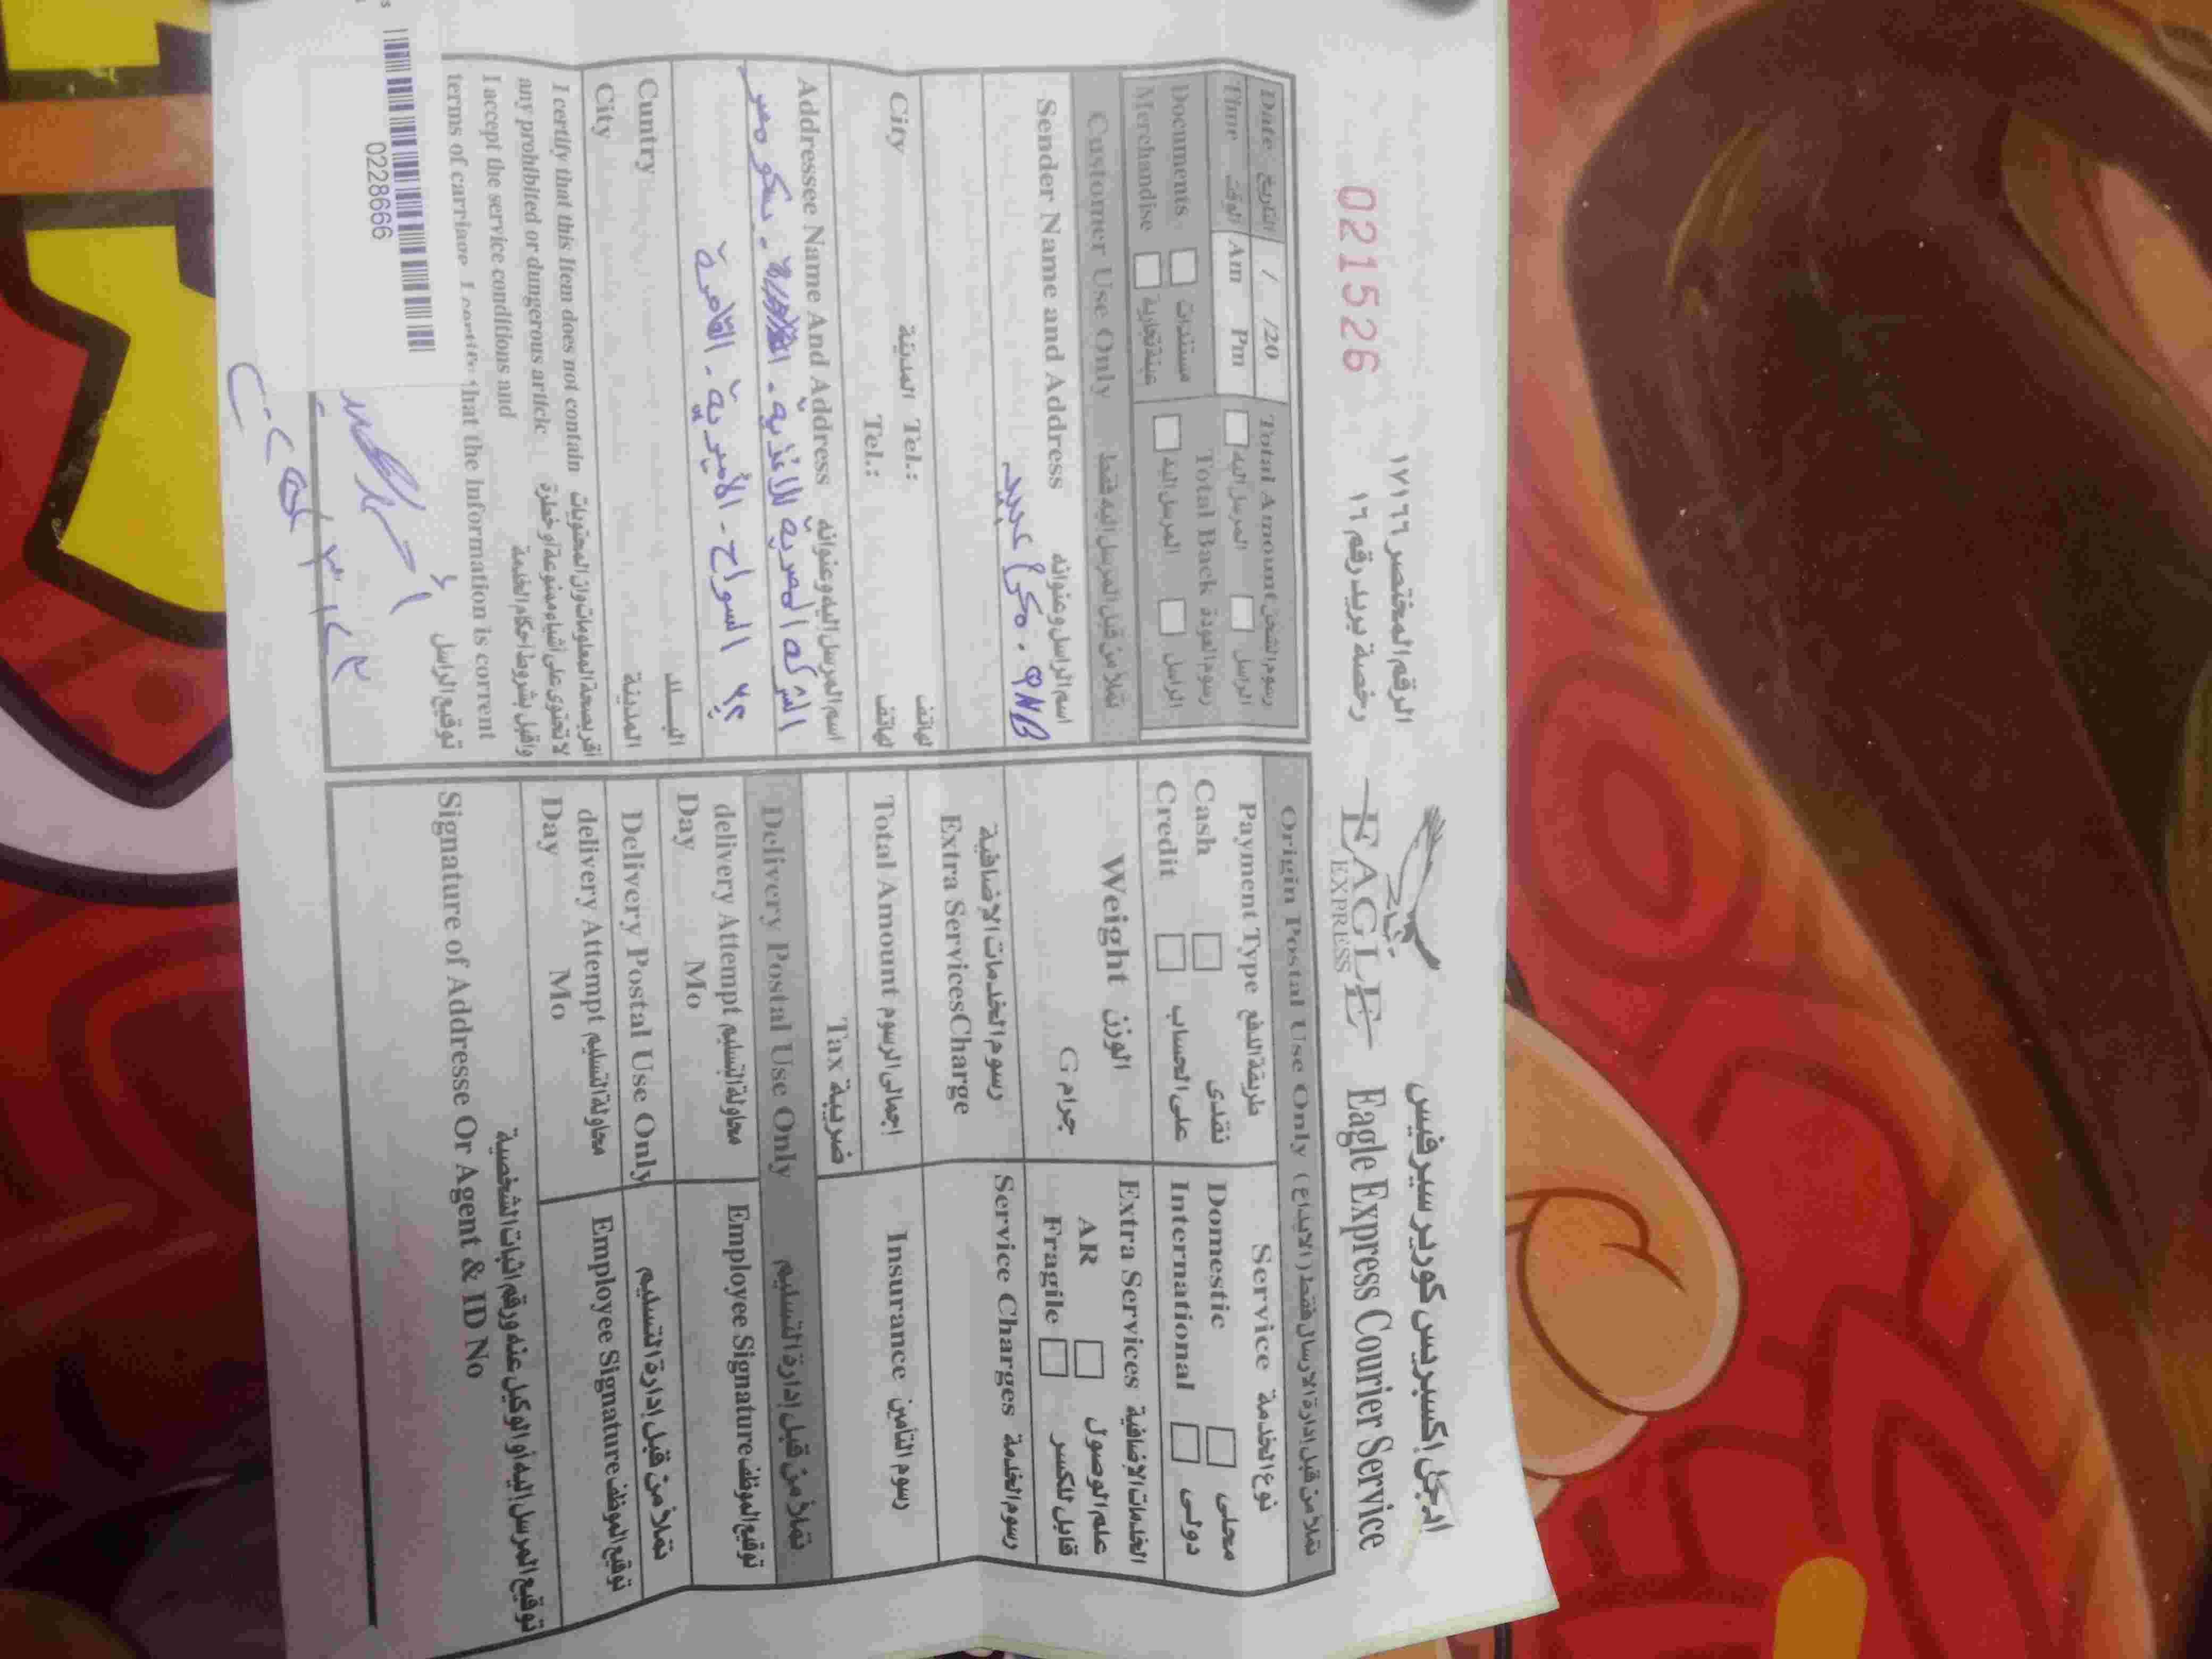 الرقم المختصر ١٧١٦٦
رخصة بريد رقم ١٦
021526
EAGLE
EXPRESS
ايجل إكسبريس كوريير سيرفيس
Eagle Express Courier Service
Date التاريخ / /20
Time الوقت Am Pm
Documents مستندات
Merchandise عينة تجارية
Total Amount رسوم الشحن
المرسل اليه الراسل
Total Back رسوم العودة
المرسل اليه الراسل
Customer Use Only تملأ من قبل المرسل اليه فقط
Sender Name and Address اسم الراسل وعنوانه
QNB
City المدينة Tel.: تليفون
Tel.: تليفون
Addressee Name And Address اسم المرسل اليه وعنوانه
الشركه المصرية للأغذية - بسكو مصر
السواح - الأميرية - القاهرة
Cuntry البلد
City المدينة
I certify that this item does not contain
any prohibited or dangerous article
I accept the service conditions and
terms of carriage. I certify that the Information is corrent
أقر بصحة المعلومات وان المحتويات
لا تحتوى على أشياء ممنوعة أو خطرة
واقبل بشروط أحكام الخدمة
توقيع الراسل
0228666
Origin Postal Use Only تملأ من قبل إدارة الارسال فقط (الايداع)
Payment Type طريقة الدفع
Cash نقدى
Credit على الحساب
Service نوع الخدمة
Domestic محلى
International دولى
Weight الوزن
G جرام
Extra Services الخدمات الإضافية
AR علم الوصول
Fragile قابل للكسر
رسوم الخدمات الاضافية
Extra ServicesCharge
Service Charges رسوم الخدمة
Total Amount اجمالى الرسوم
Insurance رسوم التأمين
Tax ضريبة
Delivery Postal Use Only تملأ من قبل إدارة التسليم
delivery Attempt محاولة التسليم
Day Mo
Employee Signature توقيع الموظف
Delivery Postal Use Only تملأ من قبل إدارة التسليم
delivery Attempt محاولة التسليم
Day Mo
Employee Signature توقيع الموظف
توقيع المرسل اليه أو الوكيل عنه ورقم اثبات الشخصية
Signature of Addresse Or Agent & ID No